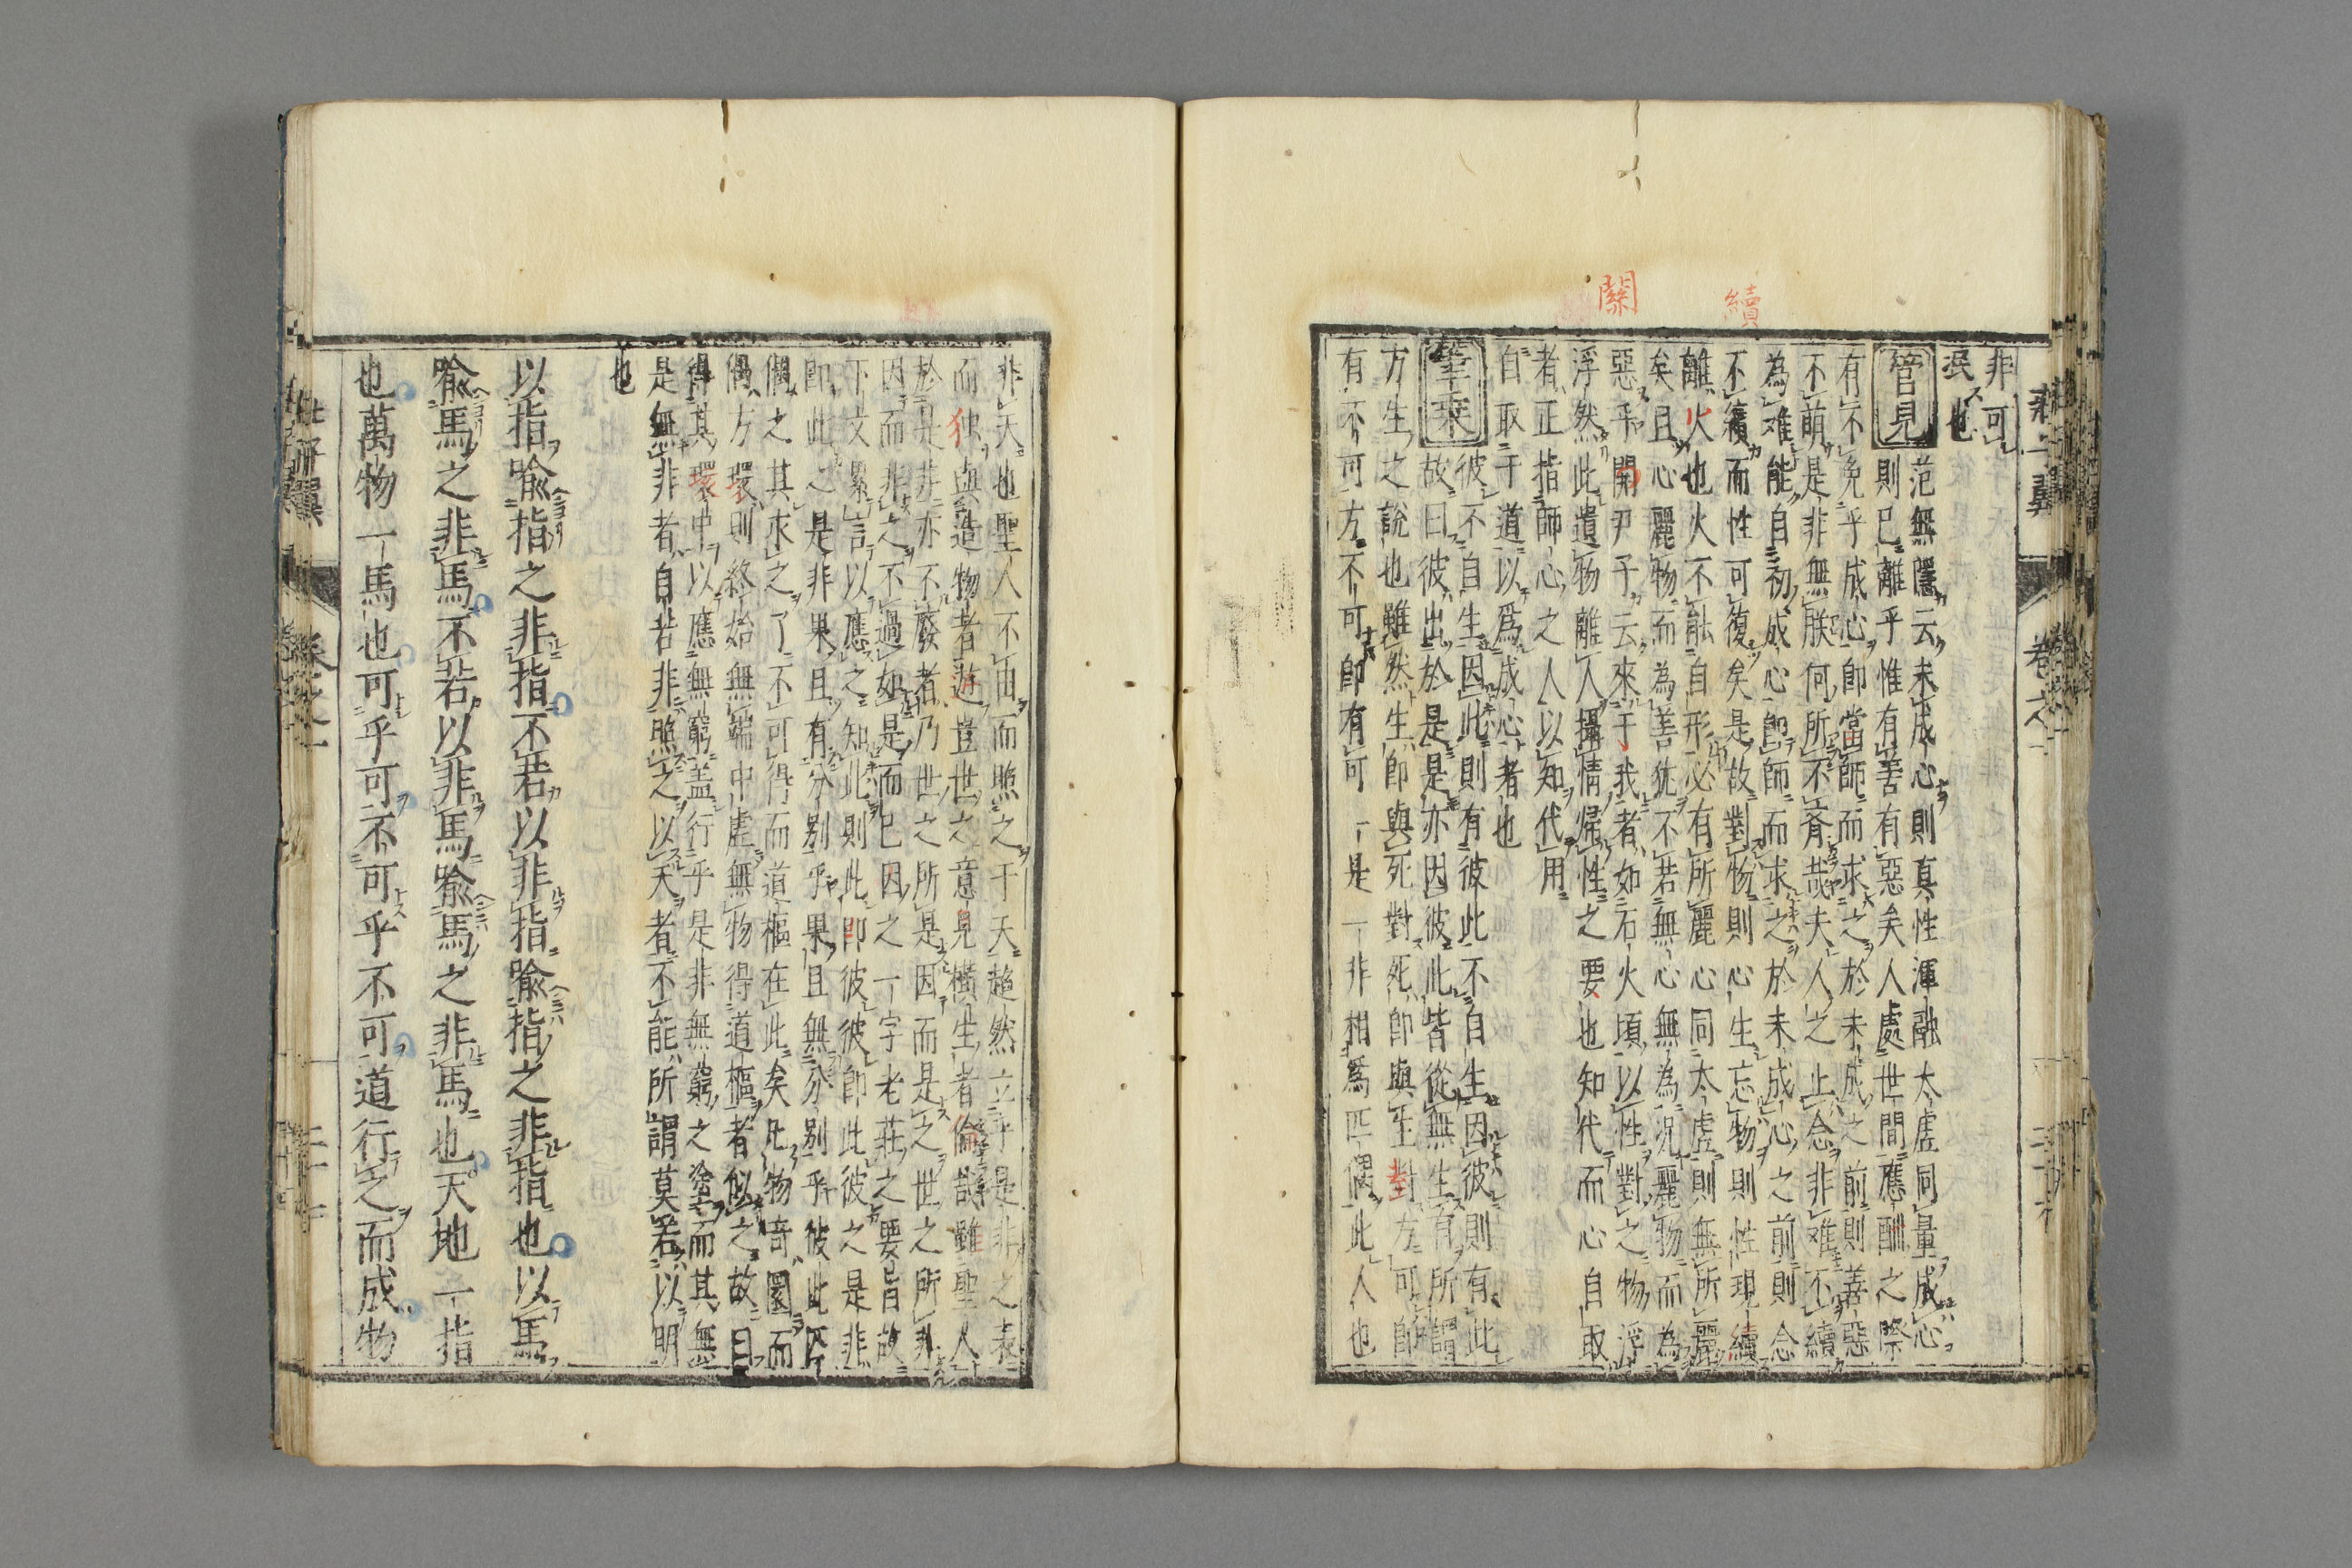 續
關
莊子翼
卷之一
非可
泯也
管見
范無隱云未成心則真性渾融太虛同量成心
則已離乎惟有善有惡矣人處世間應酬之際
有不免乎成心即當師而求之於未成之前則善惡
不萌是非無朕何所不齊哉夫人之止念非难不續
為难能自初成心即師而求之於未成心之前則念
不續而性可復矣是故對物則心生忘物則性現續
離火也火不融自形必有所麗心同太虛則無所麗
矣且心麗物而為善犹不若無心無為况麗物而為
惡乎關尹子云來于我者如石火頃以性對之物浮
浮然此遺物離人攝情歸性之要也知代而心自取
者正指師心之人以知代用
自取于道以為成心者也
筆乘
彼不自生因此則有彼此不自生因彼則有此
故曰彼出於是是亦因彼此皆從無生有所謂
方生之說也雖然生即與死對死即與生對方可即
有不可方不可即有可一是一非相爲匹偶此人也
非天也聖人不由而照之于天超然立乎是非之表
而独與造物者遊豈世之意見橫生者倫哉雖聖人
於是非亦不廢者乃世之所是因而是之世之所非
因而非之不過如是而已因之一字老莊之要旨故
下文累言以應之知此則此即彼彼即此彼之是非
即此之是非果且有分别乎果且無分别乎彼此匹
偶之其求之了不可得而道樞在此矣凡物奇圓而
偶方環則終始無端中虛無物得道樞者似之故曰
得其環中以應無窮盖行乎是非無窮之塗而其無
是無非者自若非照之以天者不能所謂莫若以明
也
以指喻指之非指不若以非指喻指之非指也以馬
喻馬之非馬不若以非馬喻馬之非馬也天地一指
也萬物一馬也可乎可不可乎不可道行之而成物